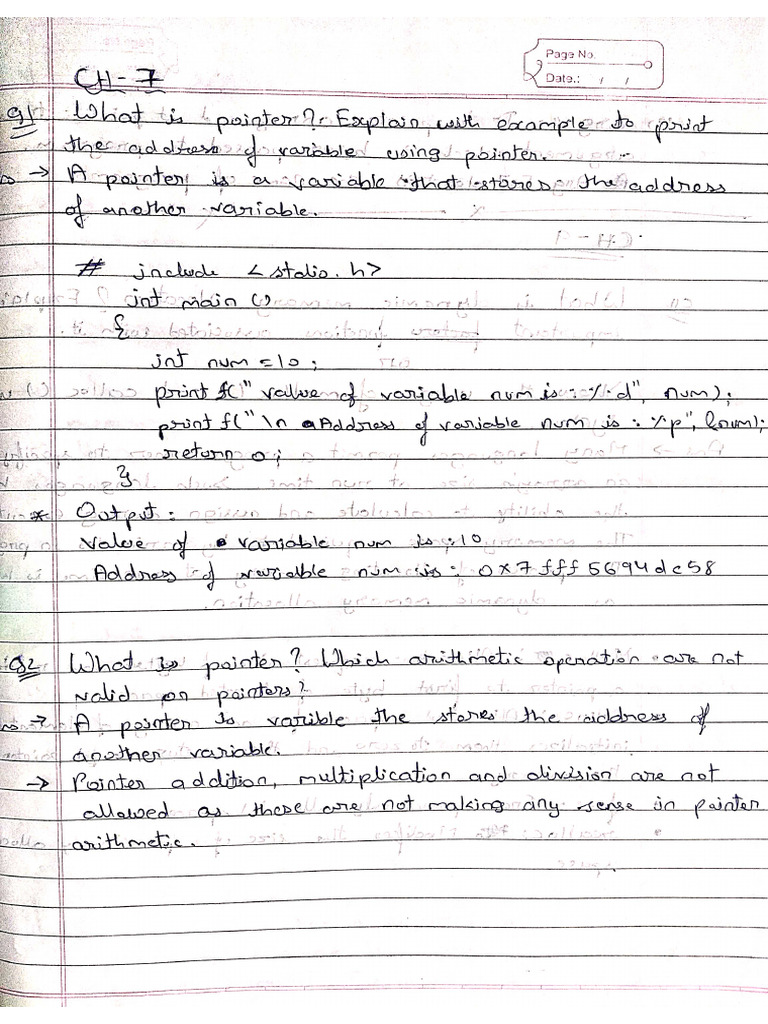 Page No.
Date.: / /
CH-7
Q1 What is pointer? Explain with example to print
the address of variable using pointer.
→ A pointer is a variable that stores the address
of another variable.
# include <stdio.h>
int main ()
{
int num = 10 ;
print f(" value of variable num is : %d", num);
print f("\n Address of variable num is : %p", &num);
return 0 ;
}
* Output :
Value of variable num is : 10
Address of variable num is : 0x7fff5694dc58
Q2 What is pointer? Which arithmetic operation are not
valid on pointers?
→ A pointer is varible the stores the address of
another variable.
→ Pointer addition, multiplication and division are not
allowed as these are not making any sense in pointer
arithmetic.